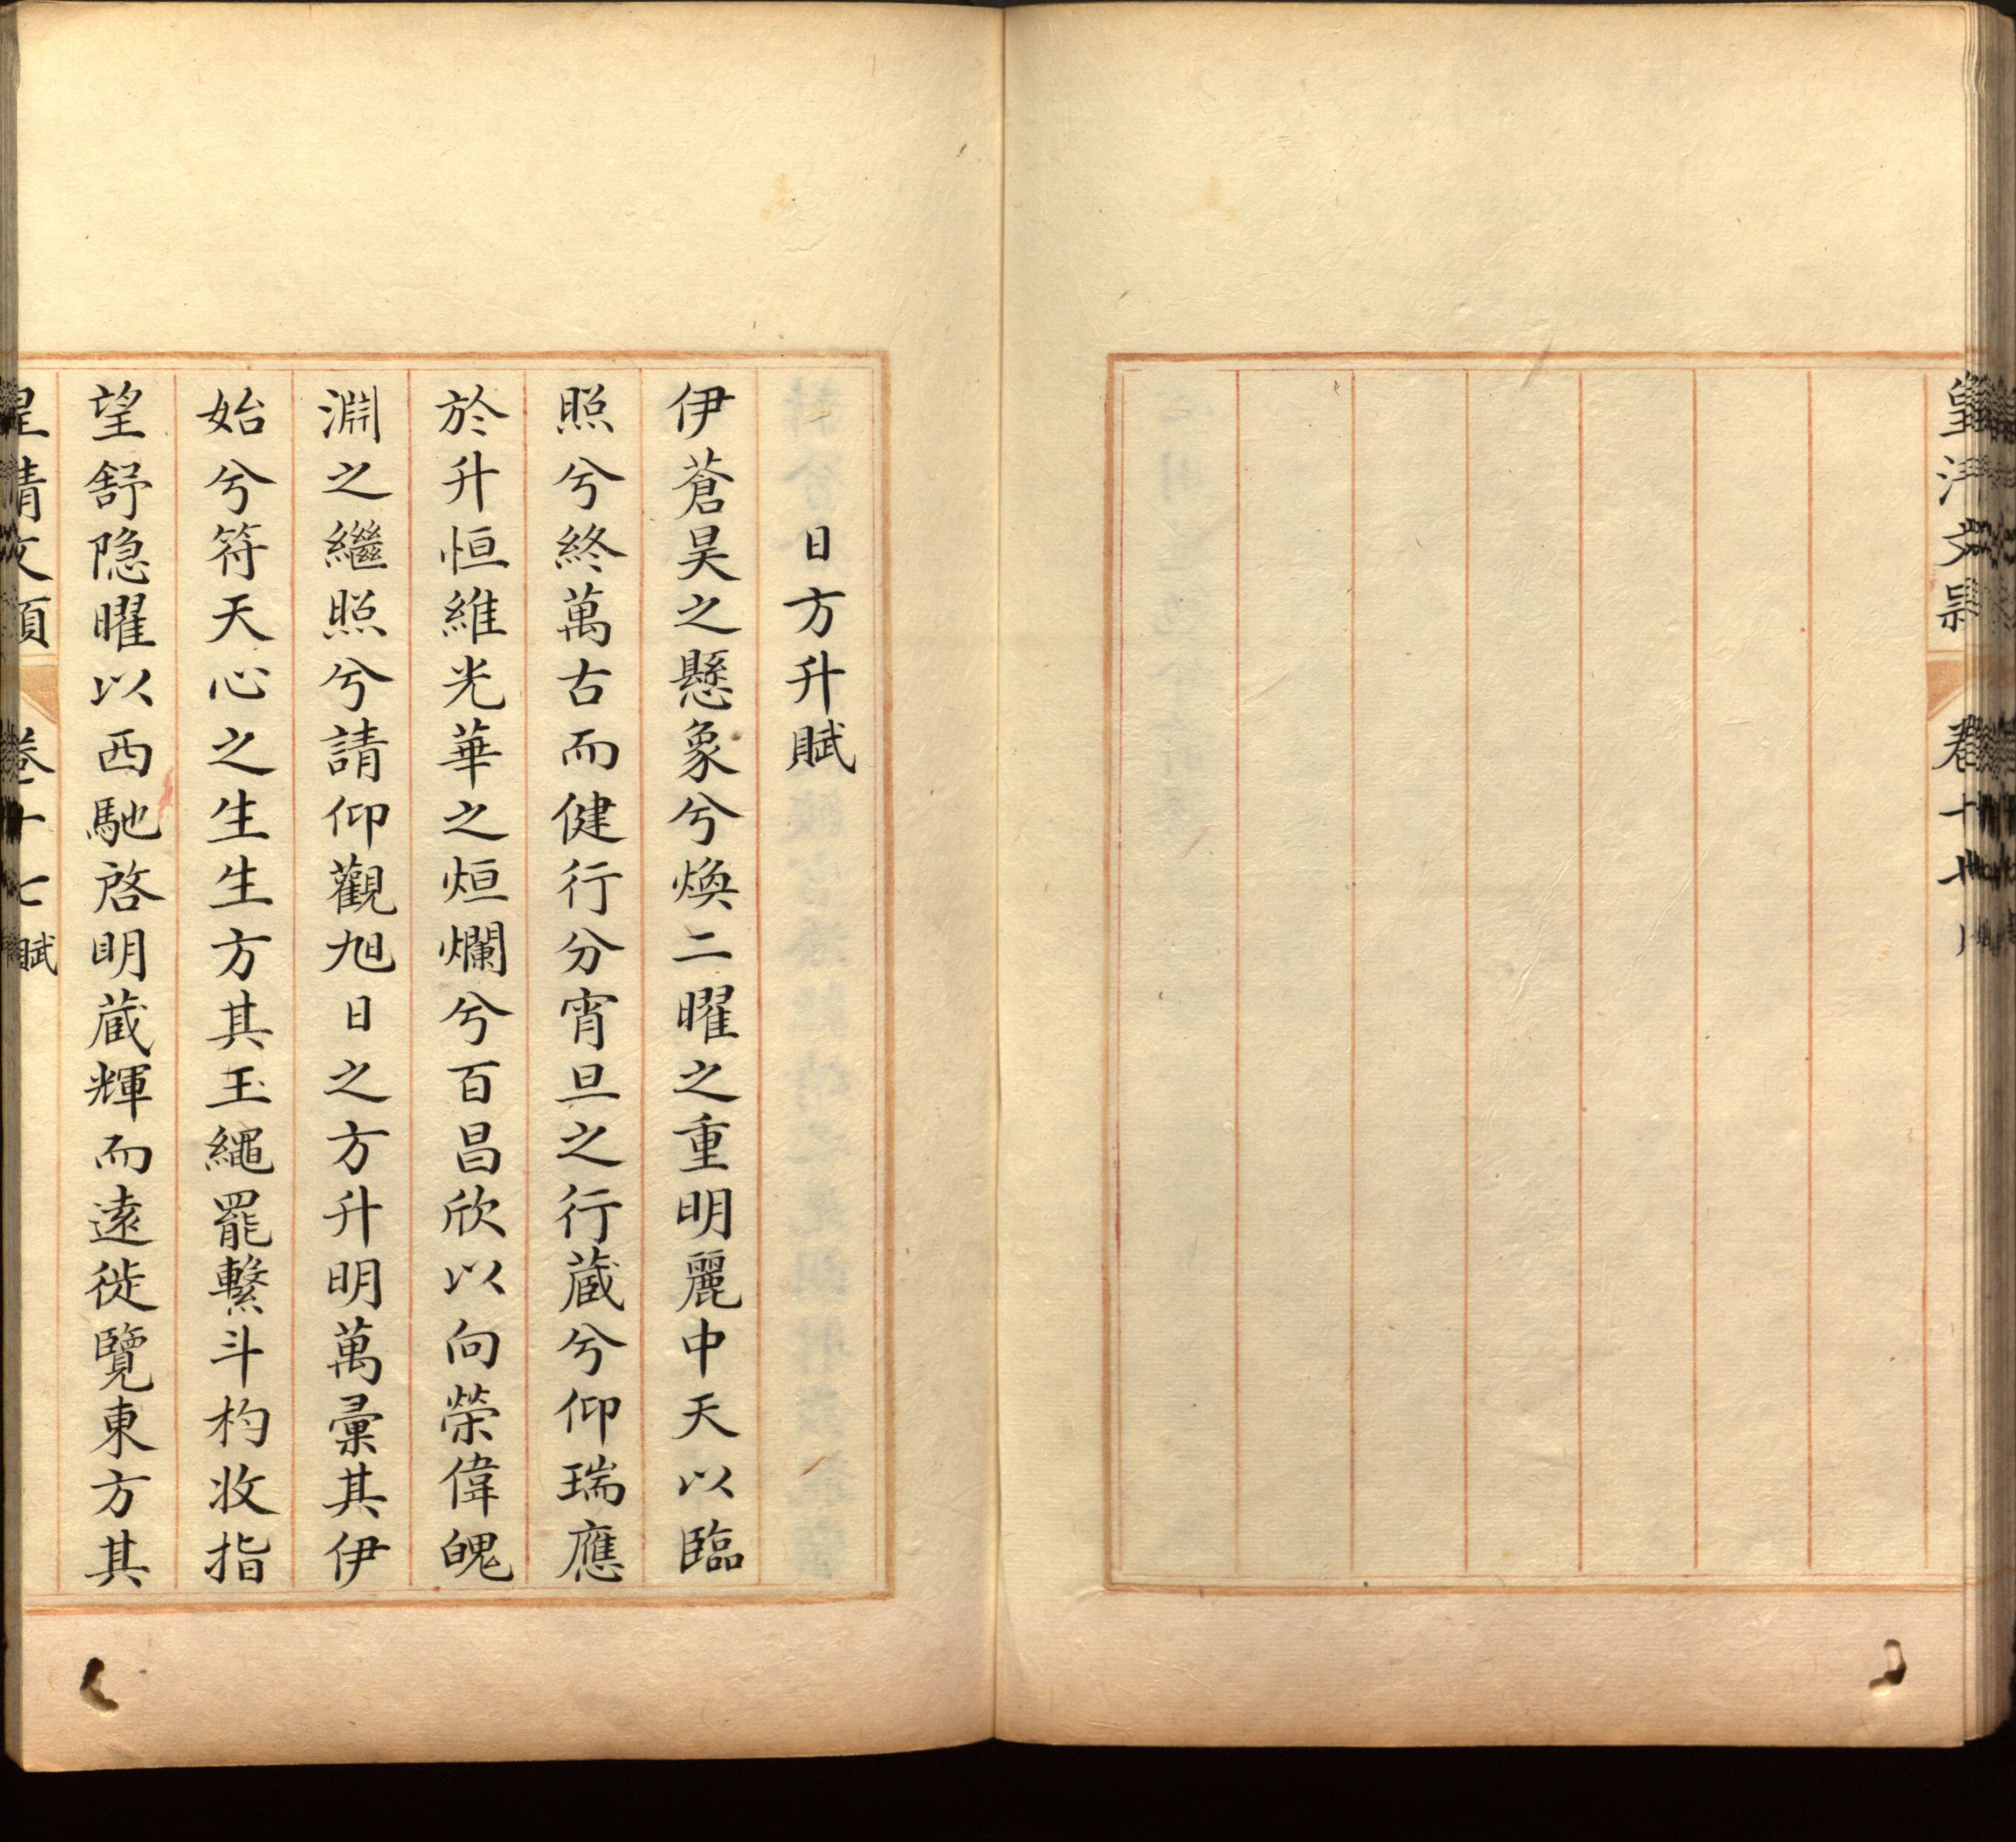 日方升賦
伊蒼昊之懸象兮煥二曜之重明麗中天以臨
照兮終萬古而健行分宵旦之行蔵兮仰瑞應
於升恒維光華之烜爛兮百昌欣以向榮偉魄
淵之繼照兮請仰觀旭日之方升明萬彙其伊
始兮符天心之生生方其玉繩罷繫斗杓收指
望舒隐曜以西馳啓明蔵輝而遠徙覽東方其
皇清文穎 卷十七賦